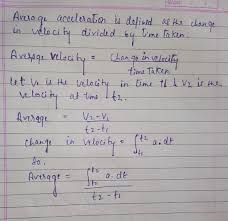 Average acceleration is defined as the change
in velocity divided by time taken.
Average velocity = Change in velocity
time taken
Let V₁ is the velocity in time t1 & V2 is the
velocity at time t2.
Average = V2-V1
t2-t1
Change in velocity = ∫t1 t2 a.dt
So,
Average = ∫t2 t2 a.dt
t2-t1